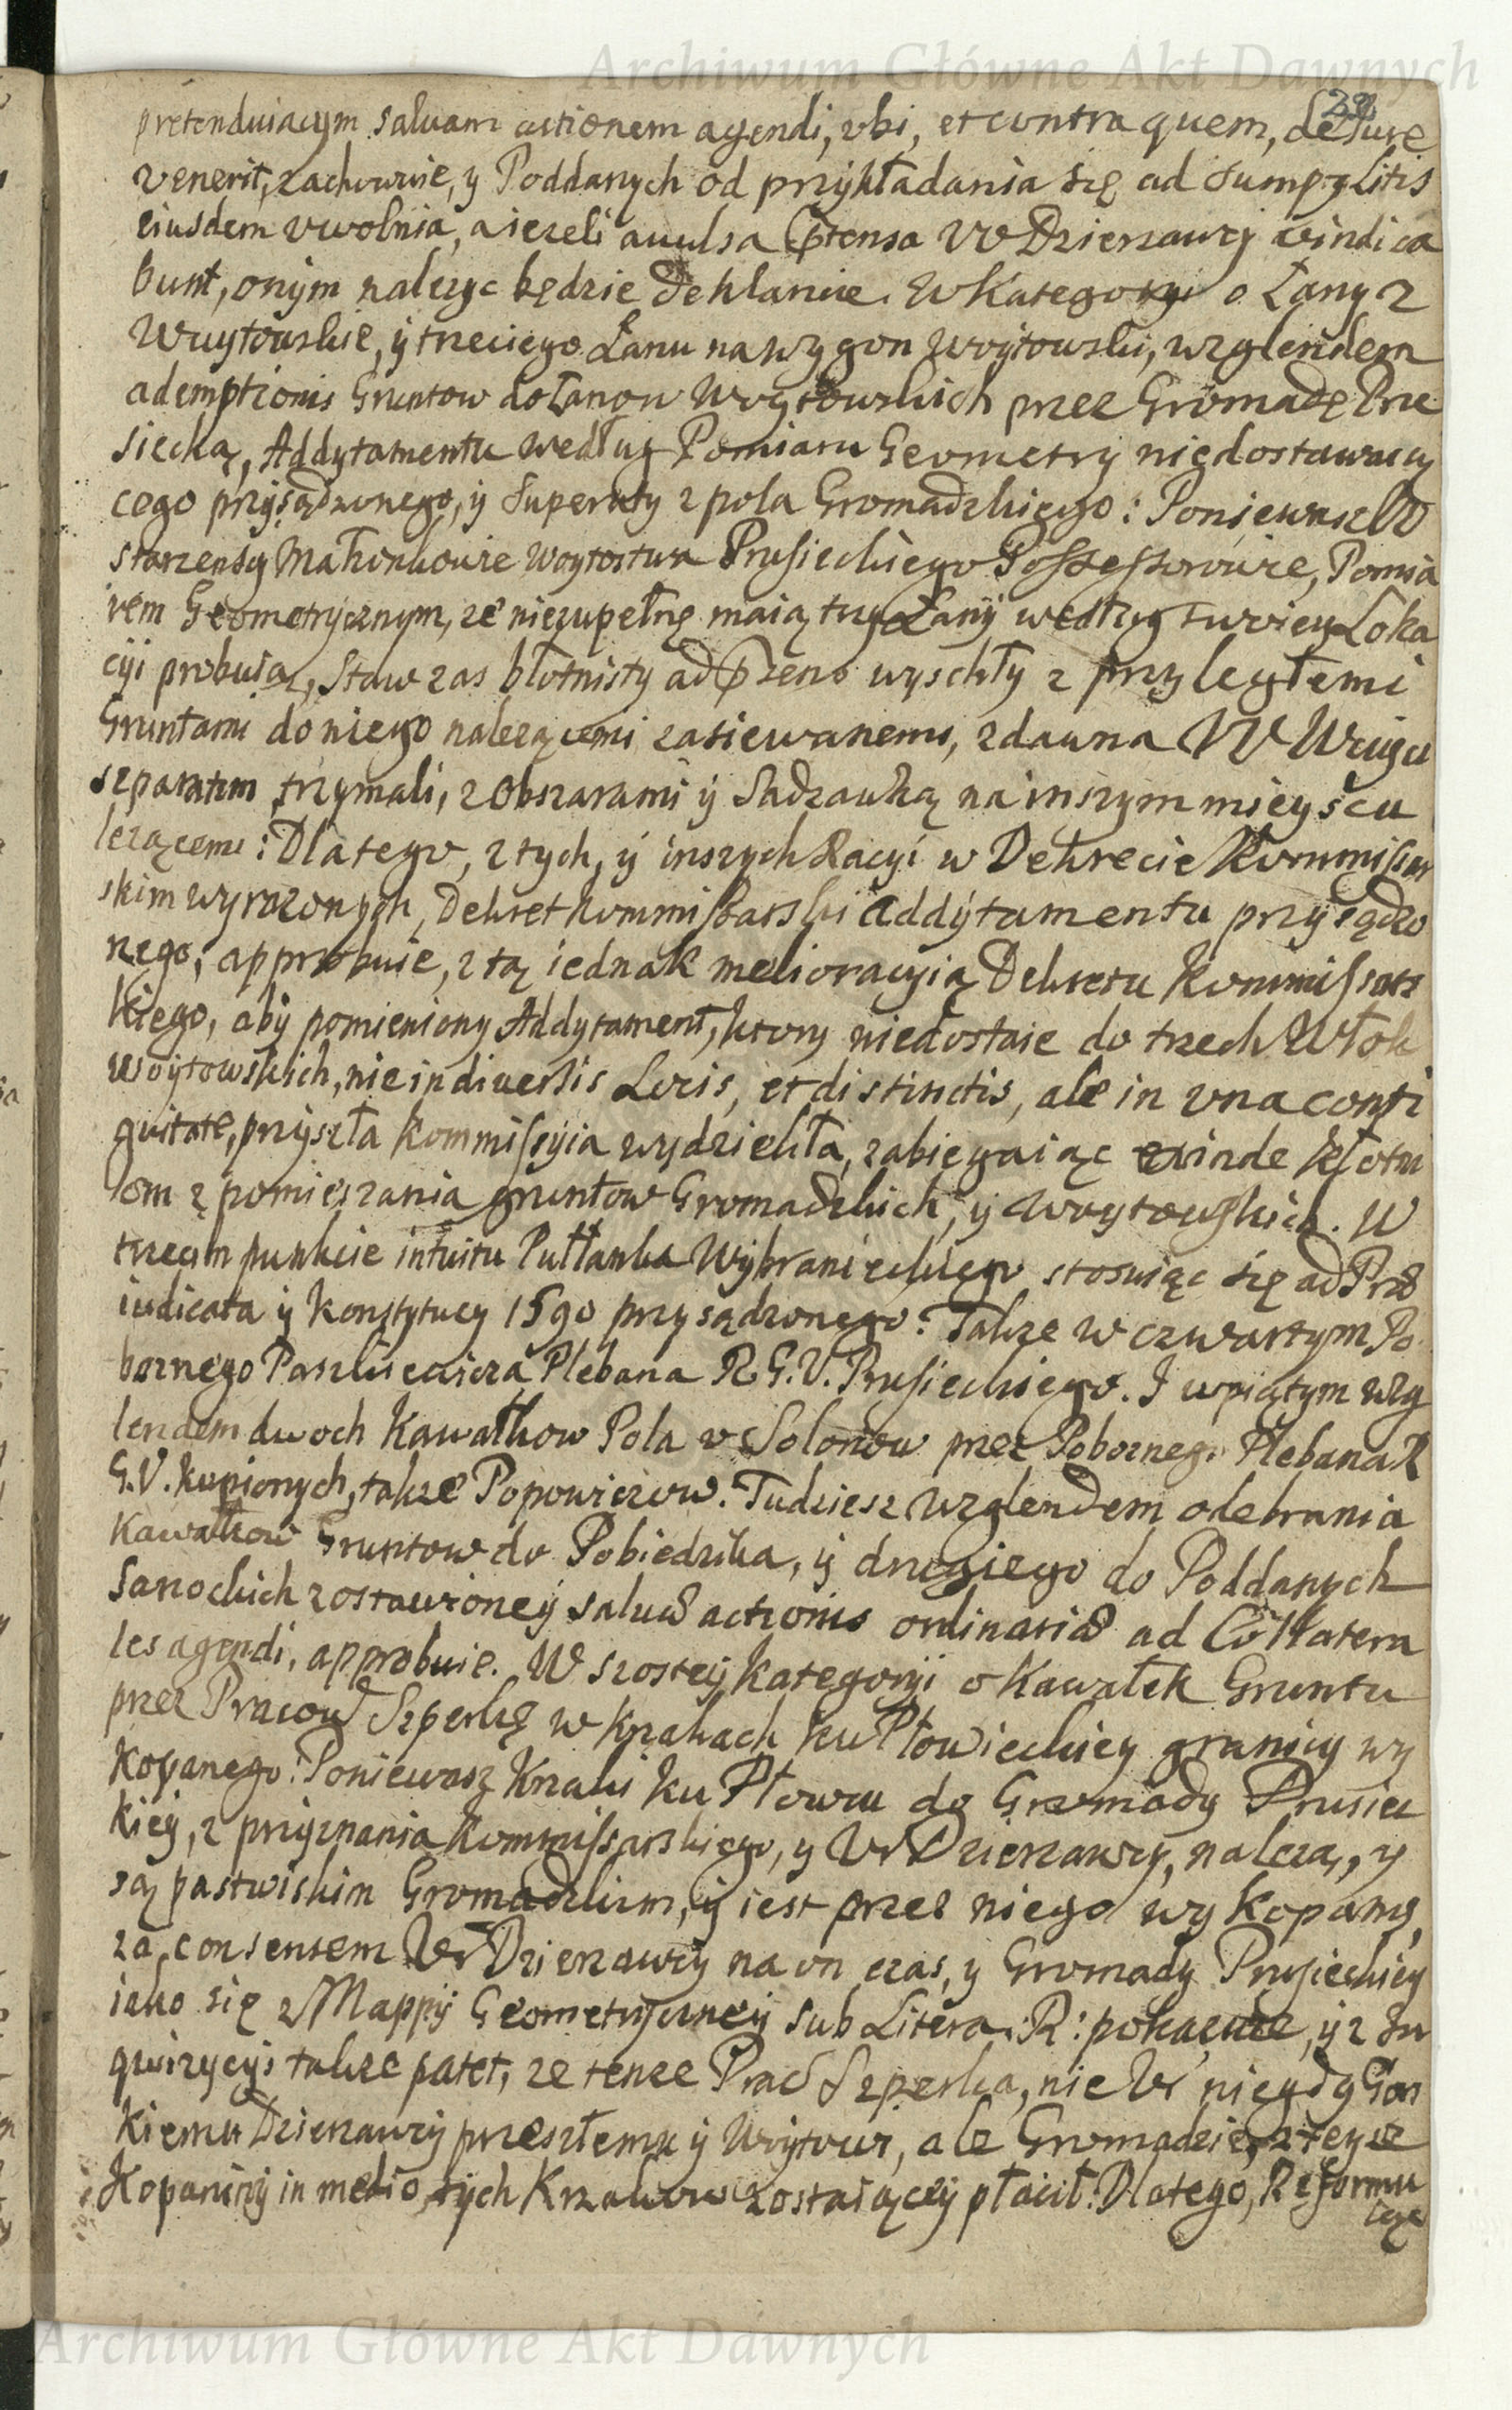 Archiwum Główne Akt Dawnych
22
pretenduiacym salvam actionem agendi, vbi, et contra quem, de Jure
venerit, zachowuie, y Poddanych od przykładania się ad Sumpty Litis
eiusdem vwolnia, a iezeli avulsa Prtensa W Dzierzawcy vindica
bunt, onym nalezyc będzie deklaruie. W Kategoryi o Łany 2
Woytowskie, y trzeciego Łanu na wygon Woytowski, względem
ademptionis Gruntow do Łanow Woytowskich przez Gromadę Pru
siecką, Addytamentu według Pomiaru Geometry niedostawaią
cego przysądzonego, y Superaty z pola Gromadzkiego: Poniewasz W
Starzenscy Małzonkowie Woytostwa Prusieckiego Possessorowie, Pomia
rem Geometrycznym, ze niezupełnę maią trzy Łany według swoiey Loka
cyi probuią, Staw zas błotnisty ad Prsens wyschły z przyległemi
Gruntami do niego nalezącemi zasiewanemi, zdawna W Woyci
separatim trzymali, z Obszarami y Sadzawką na inszym mieyscu
lezącemi: Dlatego, z tych, y inszych Racyi w Dekrecie Kommissar
skim wyrazonych, Dekret Kommissarski Addytamentu przysądzo
nego, approbuie, z tą iednak melioracyią Dekretu Kommissars
kiego, aby pomieniony Addytament, ktory niedostaie do trzech Włok
Woytowskich, nie in diversis Locis, et distinctis, ale in vna conti
guitate, przyszła Kommissyia wydzieliła, zabiegaiąc exinde kłotni
om z pomieszania gruntow Gromadzkich, y Woytowskich. W
trzecim punkcie intuitu Pułłanka Wybranieckiego stosuiąc się ad Præ
iudicata y Konstytucy 1590 przysądzonego: Takze w czwartym Po
boznego Paszkiewicza Plebana R. G. V. Prusieckiego. I w piątym wzg
lendem dwoch Kawałkow Pola v Solonow przez Poboznego Plebana R
G. V. kupionych, takze Popowiczow. Tudziesz względem odebrania
Kawałkow Gruntow do Pobiedzika, y drugiego do Poddanych
Sanockich zostawioney salvæ actionis ordinariæ ad Collatera
les agendi, approbuie. W szostey Kategoryi o Kawałek Gruntu
przez Pracow Szperkę w Krzakach ku Płowieckiey granicy wy
kopanego: Poniewasz Krzaki ku Płowcu do Gromady Prusiec
kiey, z przyznania Kommissarskiego, y W Dzierzawcy, nalezą, y
są pastwiskim Gromadzkim, y iest przez niego wykopany,
za consensem W Dzierzawcy na on czas, y Gromady Prusieckiey
iako się z Mappy Geometryczney sub Litera: R: pokazuie, y z In
qwizycyi takze patet, ze tenze Prac Szperka, nie W niegdy Gor
kiemu Dzierzawcy przeszłemu y Woytowi, ale Gromadzie, z teyze
Kopaniny in medio tych Krzakow zostaiącey płacił: Dlatego, Reformu
iąc
Archiwum Główne Akt Dawnych